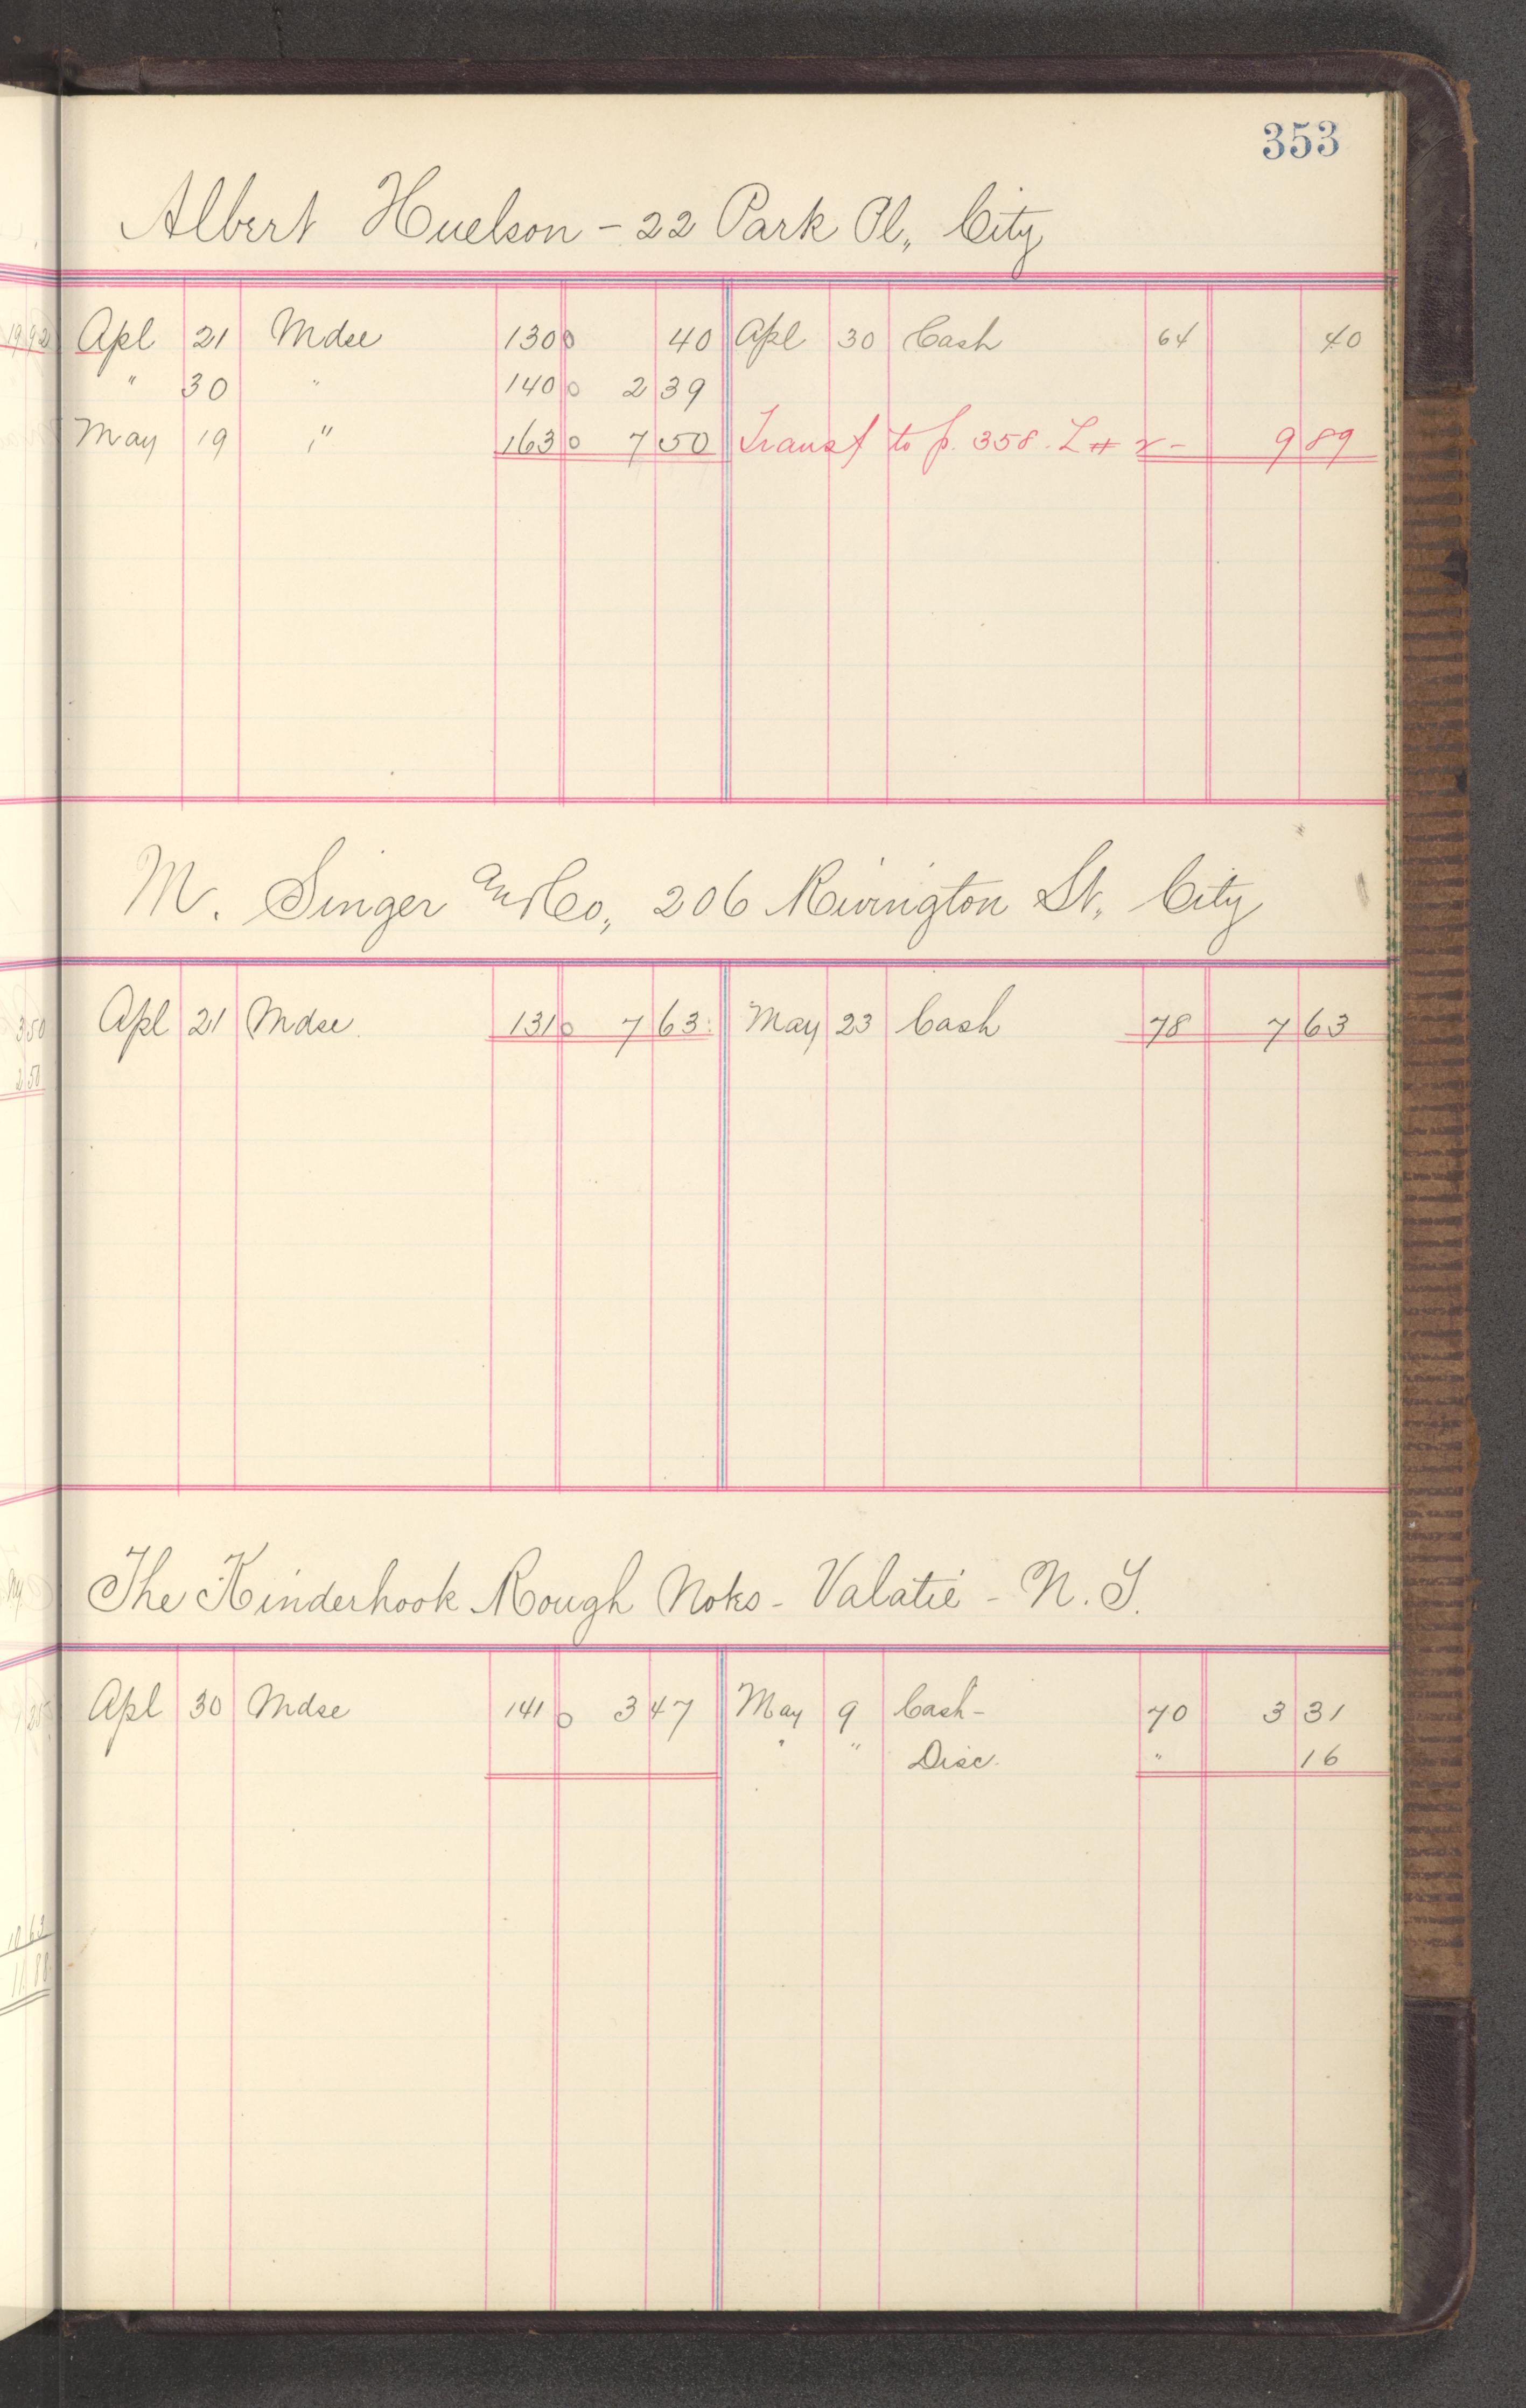 353
Albert Huelson - 22 Park Pl., City
Apl 21 Mdse 130 0 40 Apl 30 Cash 64 40
" 30 " 140 0 2 39
May 19 " 163 0 7 50 Transf to p. 358. L # 2 - 9 89
M. Singer and Co., 206 Rivington St., City
Apl 21 Mdse. 131 0 7 63 May 23 Cash 78 7 63
The Kinderhook Rough Notes - Valatie - N.Y.
Apl 30 Mdse 141 0 3 47 May 9 Cash - 70 3 31
" " Disc. " 16